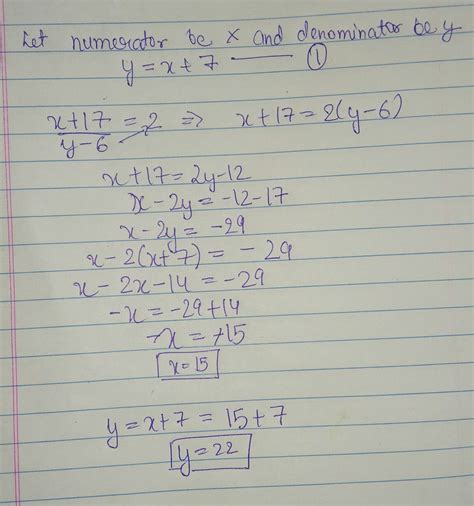 Let numerator be x and denominator be y
y = x + 7 —— ①
x+17/y-6 = 2 ⇒ x+17 = 2(y-6)
x+17 = 2y-12
x-2y = -12-17
x-2y = -29
x-2(x+7) = -29
x-2x-14 = -29
-x = -29+14
-x = -15
x=15
y = x+7 = 15+7
y=22